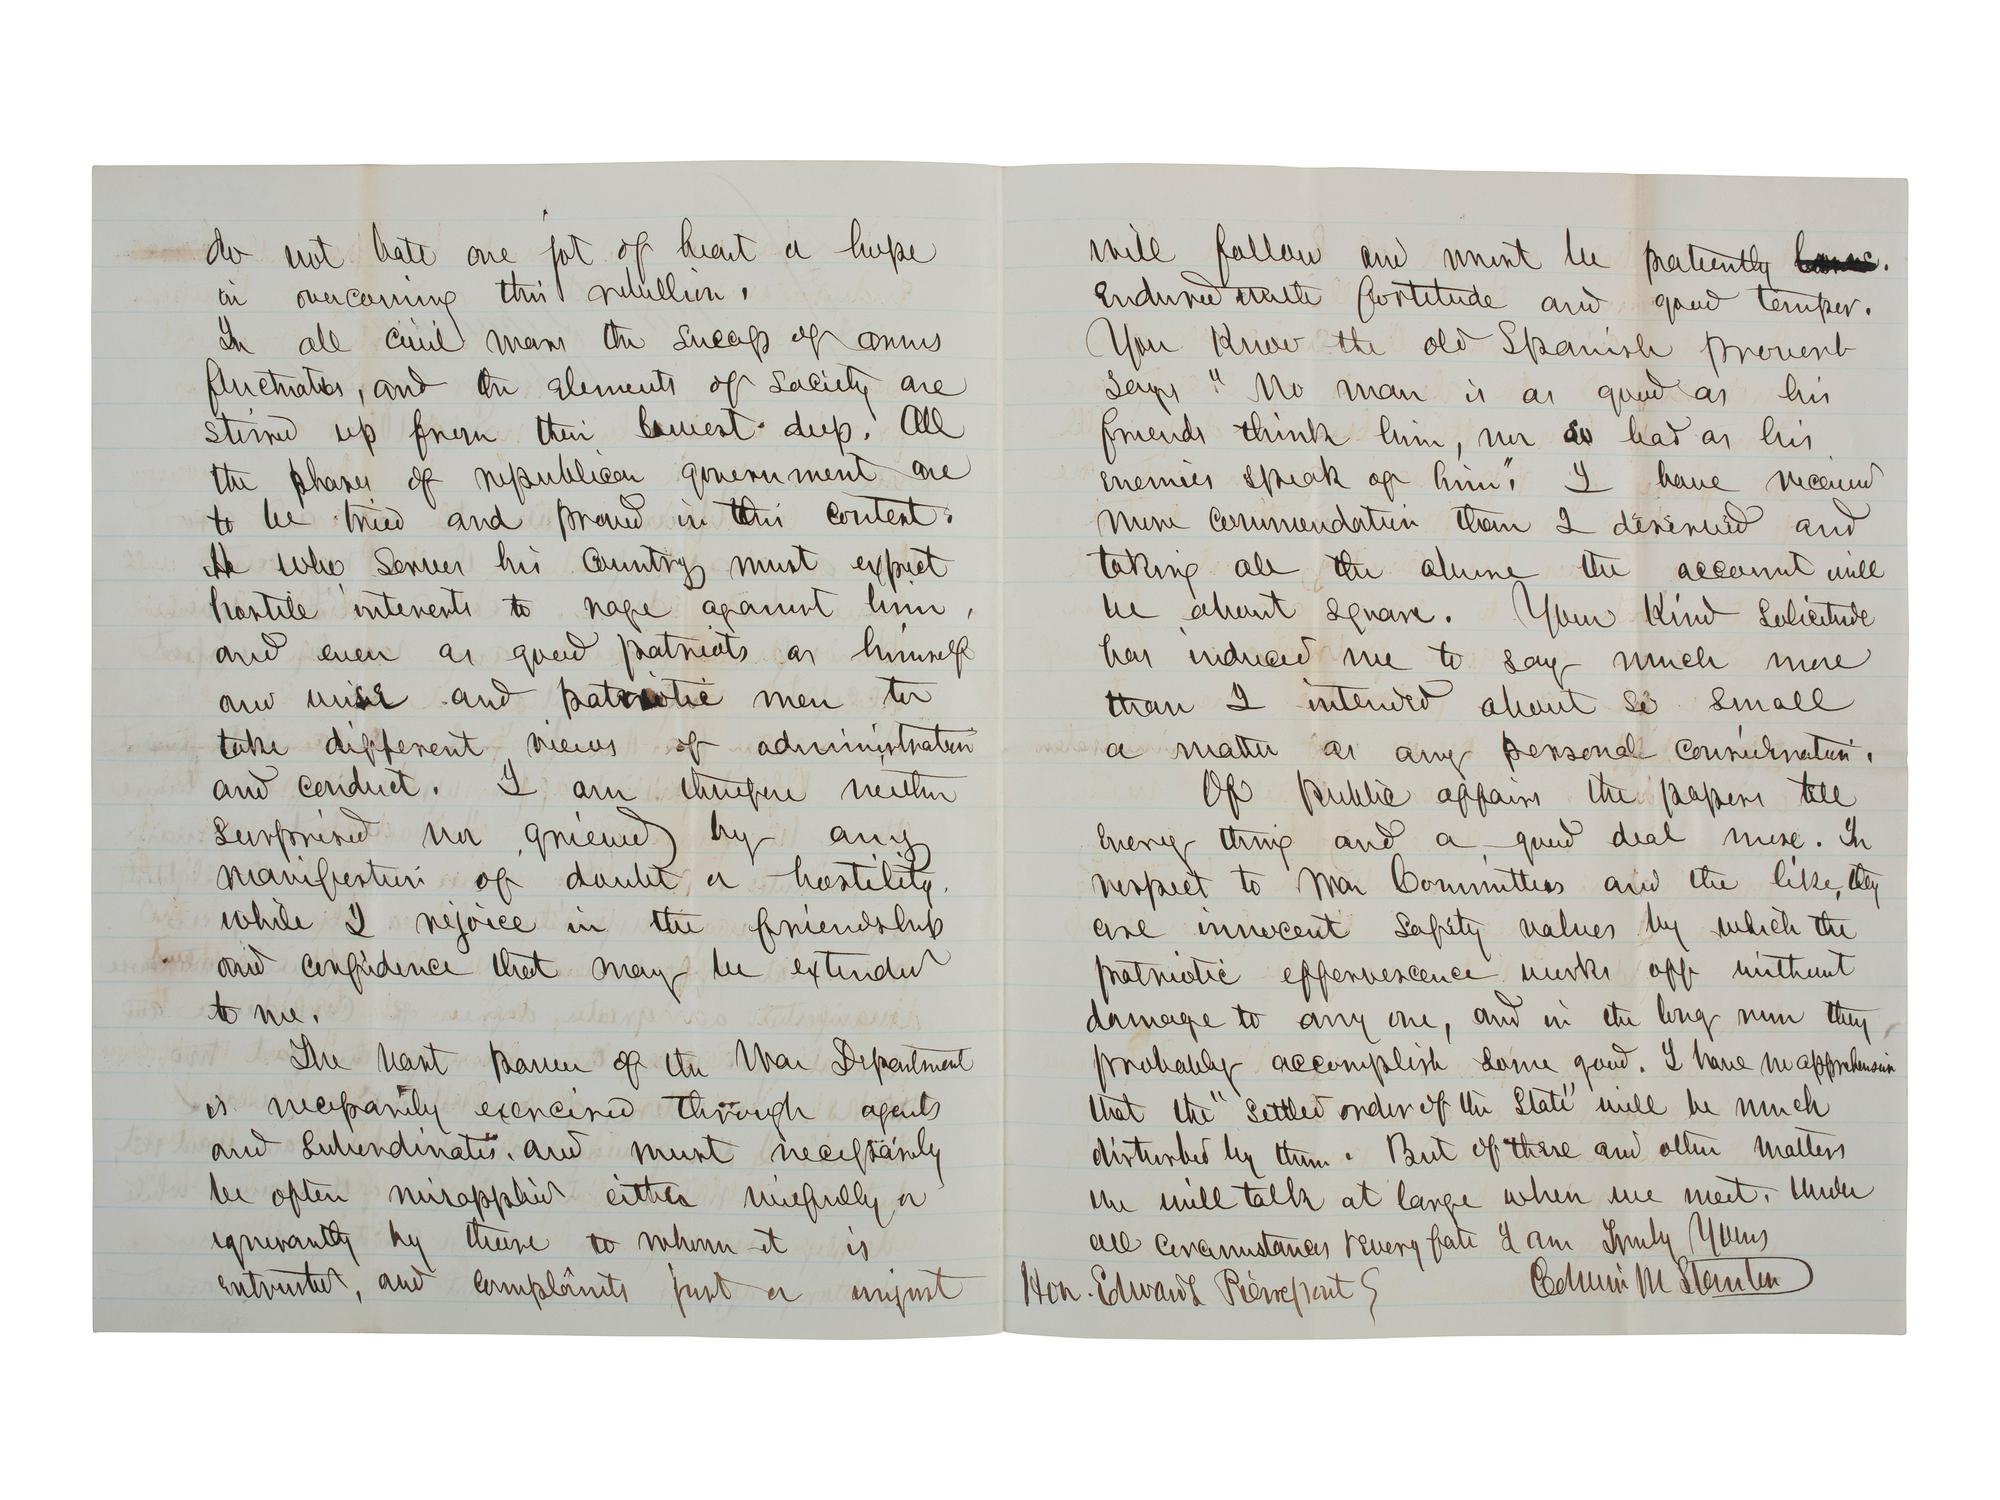 do not bate one jot of heart or hope
in overcoming this rebellion.
In all civil wars the success of arms
fluctuates, and the elements of society are
stirred up from their lowest deep. All
the phases of republican government are
to be tried and proved in this contest.
He who serves his country must expect
hostile interests to rage against him,
and even as good patriots as himself
and wise and patriotic men to
take different views of administration
and conduct. I am therefore neither
surprised nor grieved by any
manifestation of doubt or hostility.
while I rejoice in the friendship
and confidence that may be extended
to me.
The vast power of the War Department
is necessarily exercised through agents
and subordinates. and must necessarily
be often misapplied either wilfully or
ignorantly by those to whom it is
entrusted, and complaints just or unjust
will follow and must be patiently
endured with fortitude and good temper.
You Know the old Spanish proverb
says "No man is as good as his
friends think him, nor so bad as his
enemies speak of him". I have received
more commendation than I deserved and
taking all the abuse the account will
be about square. Your Kind solicitude
has induced me to say much more
than I intended about so small
a matter as any personal consideration.
Of public affairs the papers tell
every thing and a good deal more. In
respect to War Committees and the like, they
are innocent safety valves by which the
patriotic effervescence works off without
damage to any one, and in the long run they
probably accomplish some good. I have no apprehension
that the "settled order of the State" will be much
disturbed by them. But of these and other matters
we will talk at large when we meet. Under
all circumstances & every fate I am Truly Yours
Hon. Edwards Pierrepont Edwin M Stanton